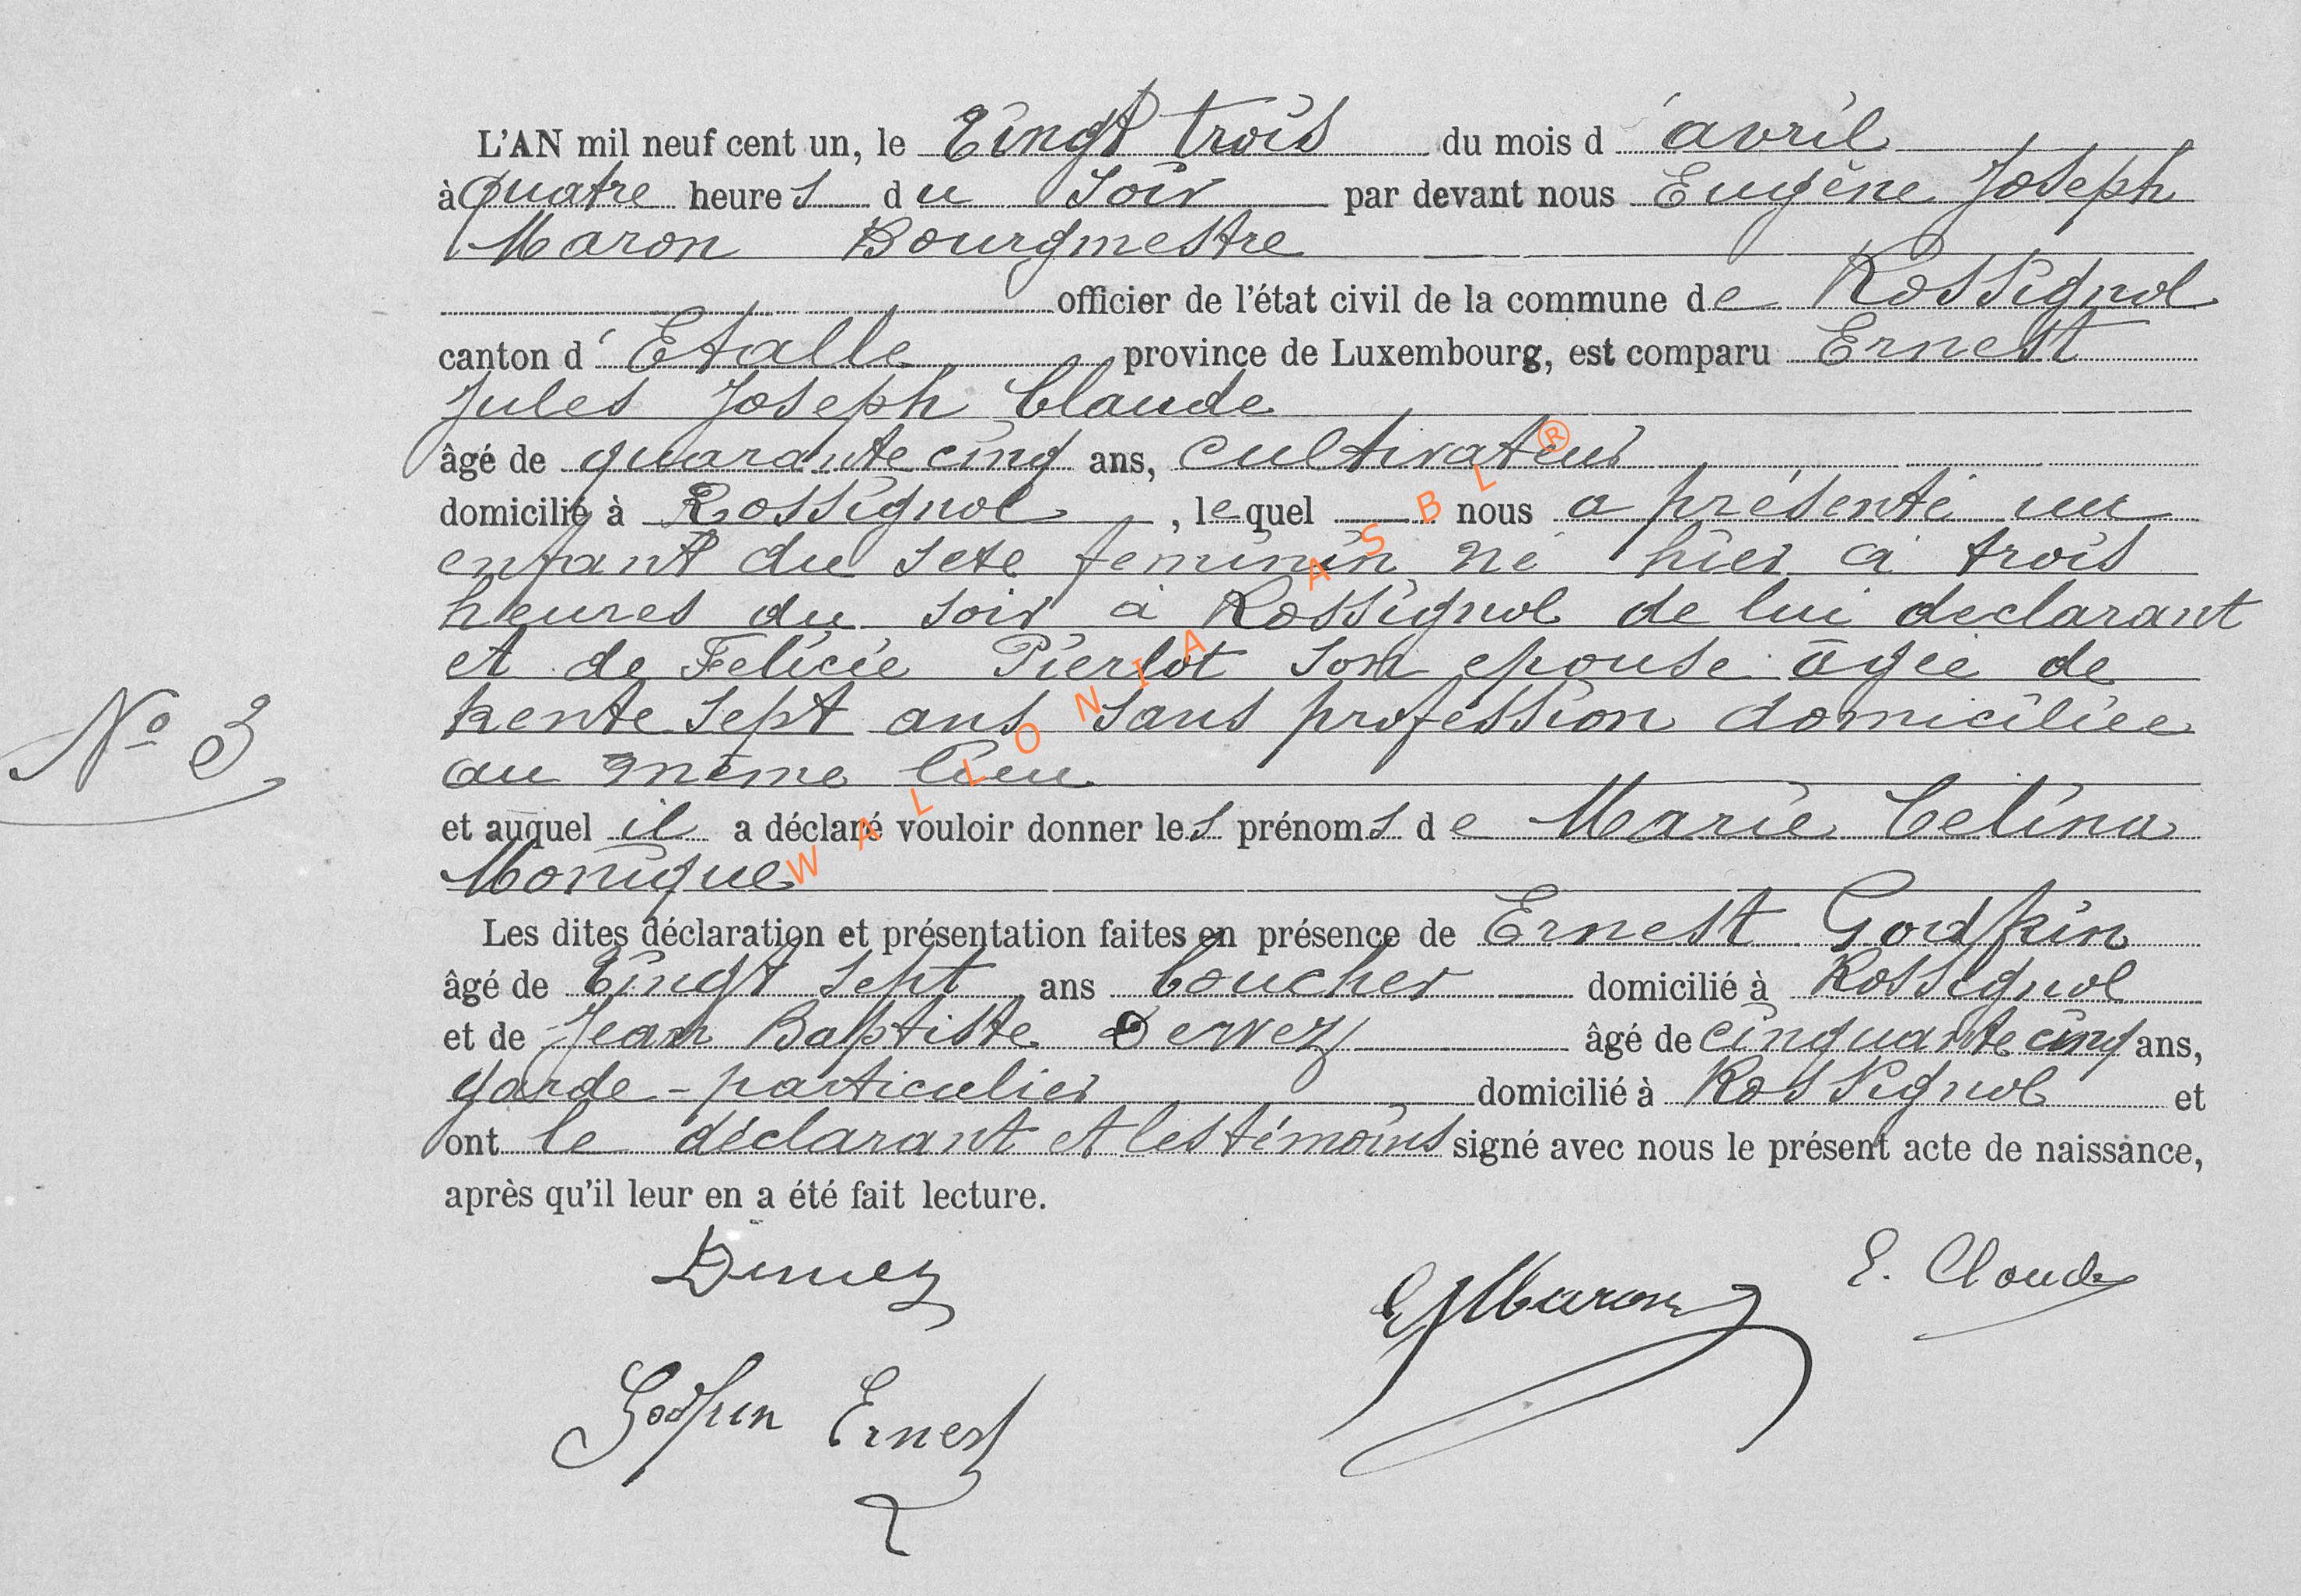 L'AN mil neuf cent un, le Vingt trois du mois d'avril
à quatre heures du soir par devant nous Eugène Joseph
Maron Bourgmestre
officier de l'état civil de la commune de Rossignol
canton d'Etalle province de Luxembourg, est comparu Ernest
Jules Joseph Claude
âgé de quarante cinq ans, cultivateur
domicilié à Rossignol, lequel nous a présenté un
enfant du sexe feminin né hier à trois
heures du soir à Rossignol de lui declarant
et de Felicie Pierlot son epouse agée de
trente sept ans sans profession domiciliée
au même lieu
N° 3
et auquel il a déclaré vouloir donner les prénoms de Marie Celina
Monique
Les dites déclaration et présentation faites en présence de Ernest Godfrin
âgé de Vingt sept ans boucher domicilié à Rossignol
et de Jean Baptiste Dervez âgé de cinquante cinq ans,
garde-particulier domicilié à Rossignol et
ont le déclarant et les témoins signé avec nous le présent acte de naissance,
après qu'il leur en a été fait lecture.
E. Claude
EJMaron
Godfrin Ernest
WALLONIA ASBL ®